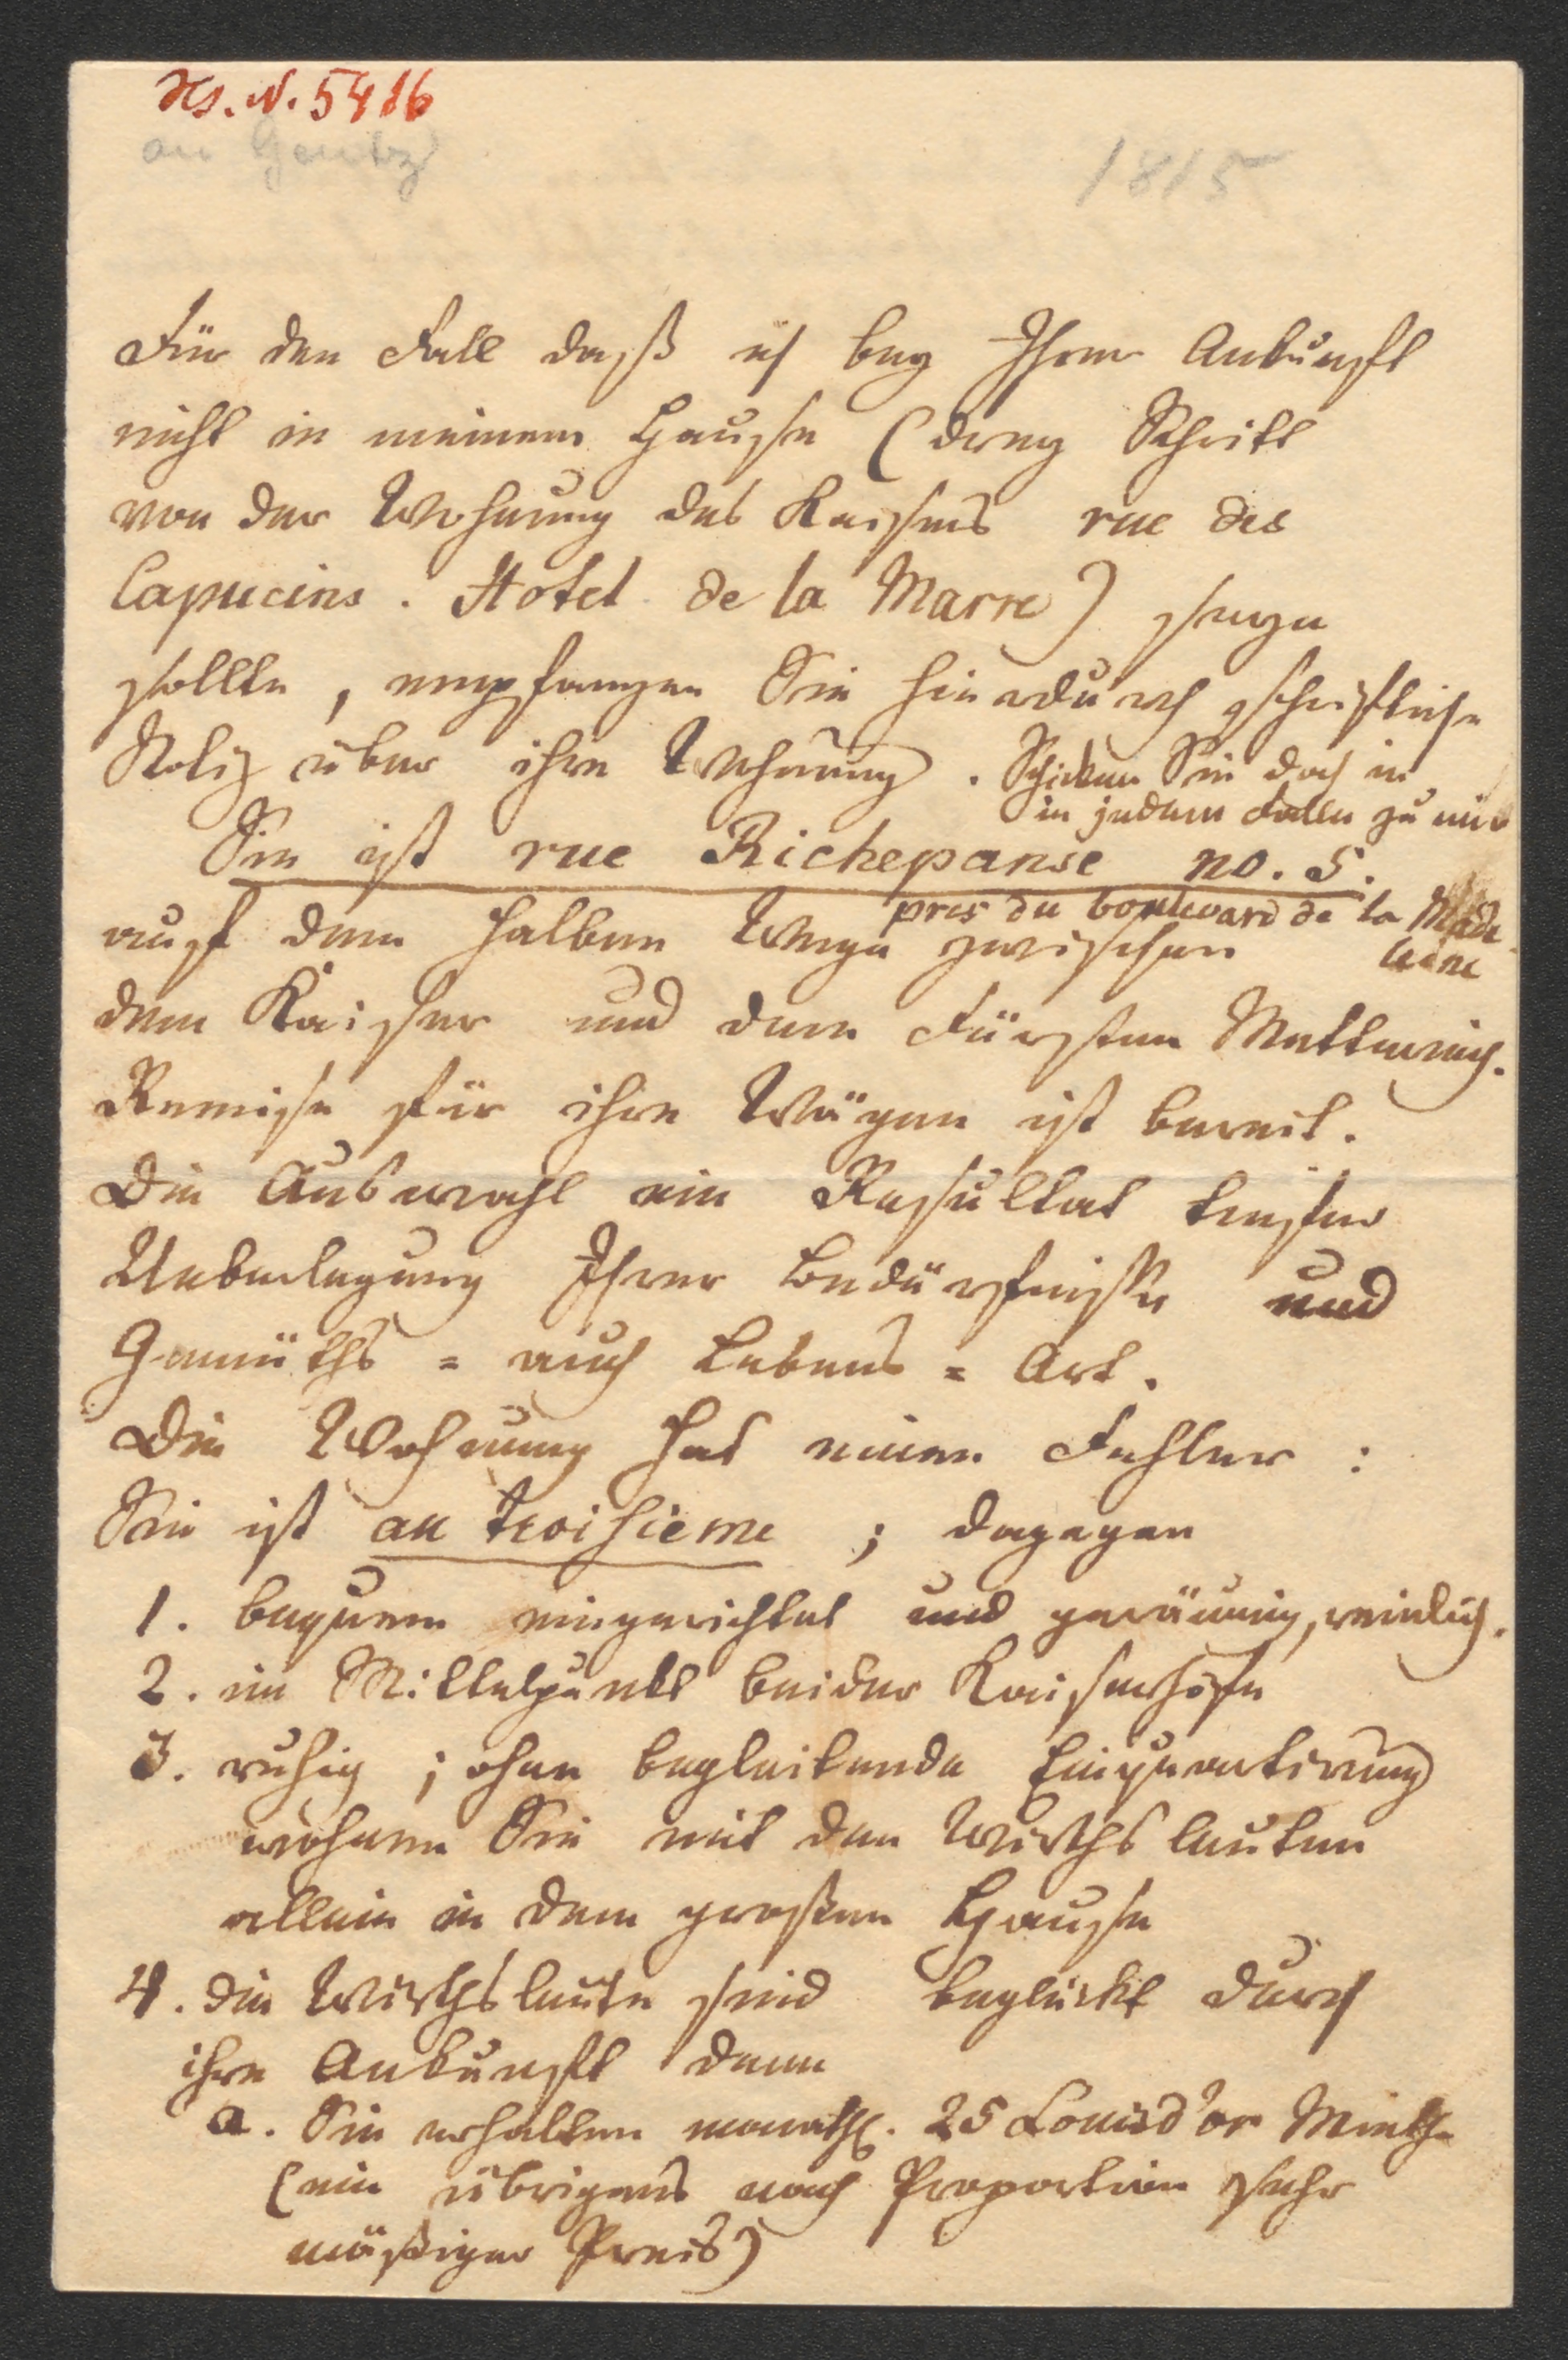 Hs. N. 5416
an Gentz
1815
Für den Fall daß ich bey Ihrer Ankunft
nicht in meinem Hause (drey Schritt
von der Wohnung des Kaisers rue des
Capucins. Hotel de la Marre) seyn
sollte, empfangen Sie hierdurch schriftliche
Notiz über ihre Wohnung. Schicken Sie doch in
in jedem Falle zu mir
Sie ist rue Richepanse no. 5.
pres du boulevard de la Made
leine
auf dem halben Wege zwischen
dem Kaiser und dem Fürsten Metternich.
Remise für ihre Wägen ist bereit.
Die Auswahl ein Resultat tiefster
Ueberlegung Ihrer Bedürfnisse und
Gemüths = auch Lebens = Art.
Die Wohnung hat einen Fehler:
Sie ist au troisieme; dagegen
1. bequem eingerichtet und geräumig, reinlich.
2. im Mittelpunkt beider Kaiserhöfe
3. ruhig; ohne begleitende Einquartirung
wohnen Sie mit den Wirthsleuten
allein in dem großen Hause
4. die Wirthsleute sind beglückt durch
ihre Ankunft denn
a. Sie erhalten monathl. 25 Louisd'or Miethe
(ein übrigens nach Proportion sehr
mäßiger Preis)